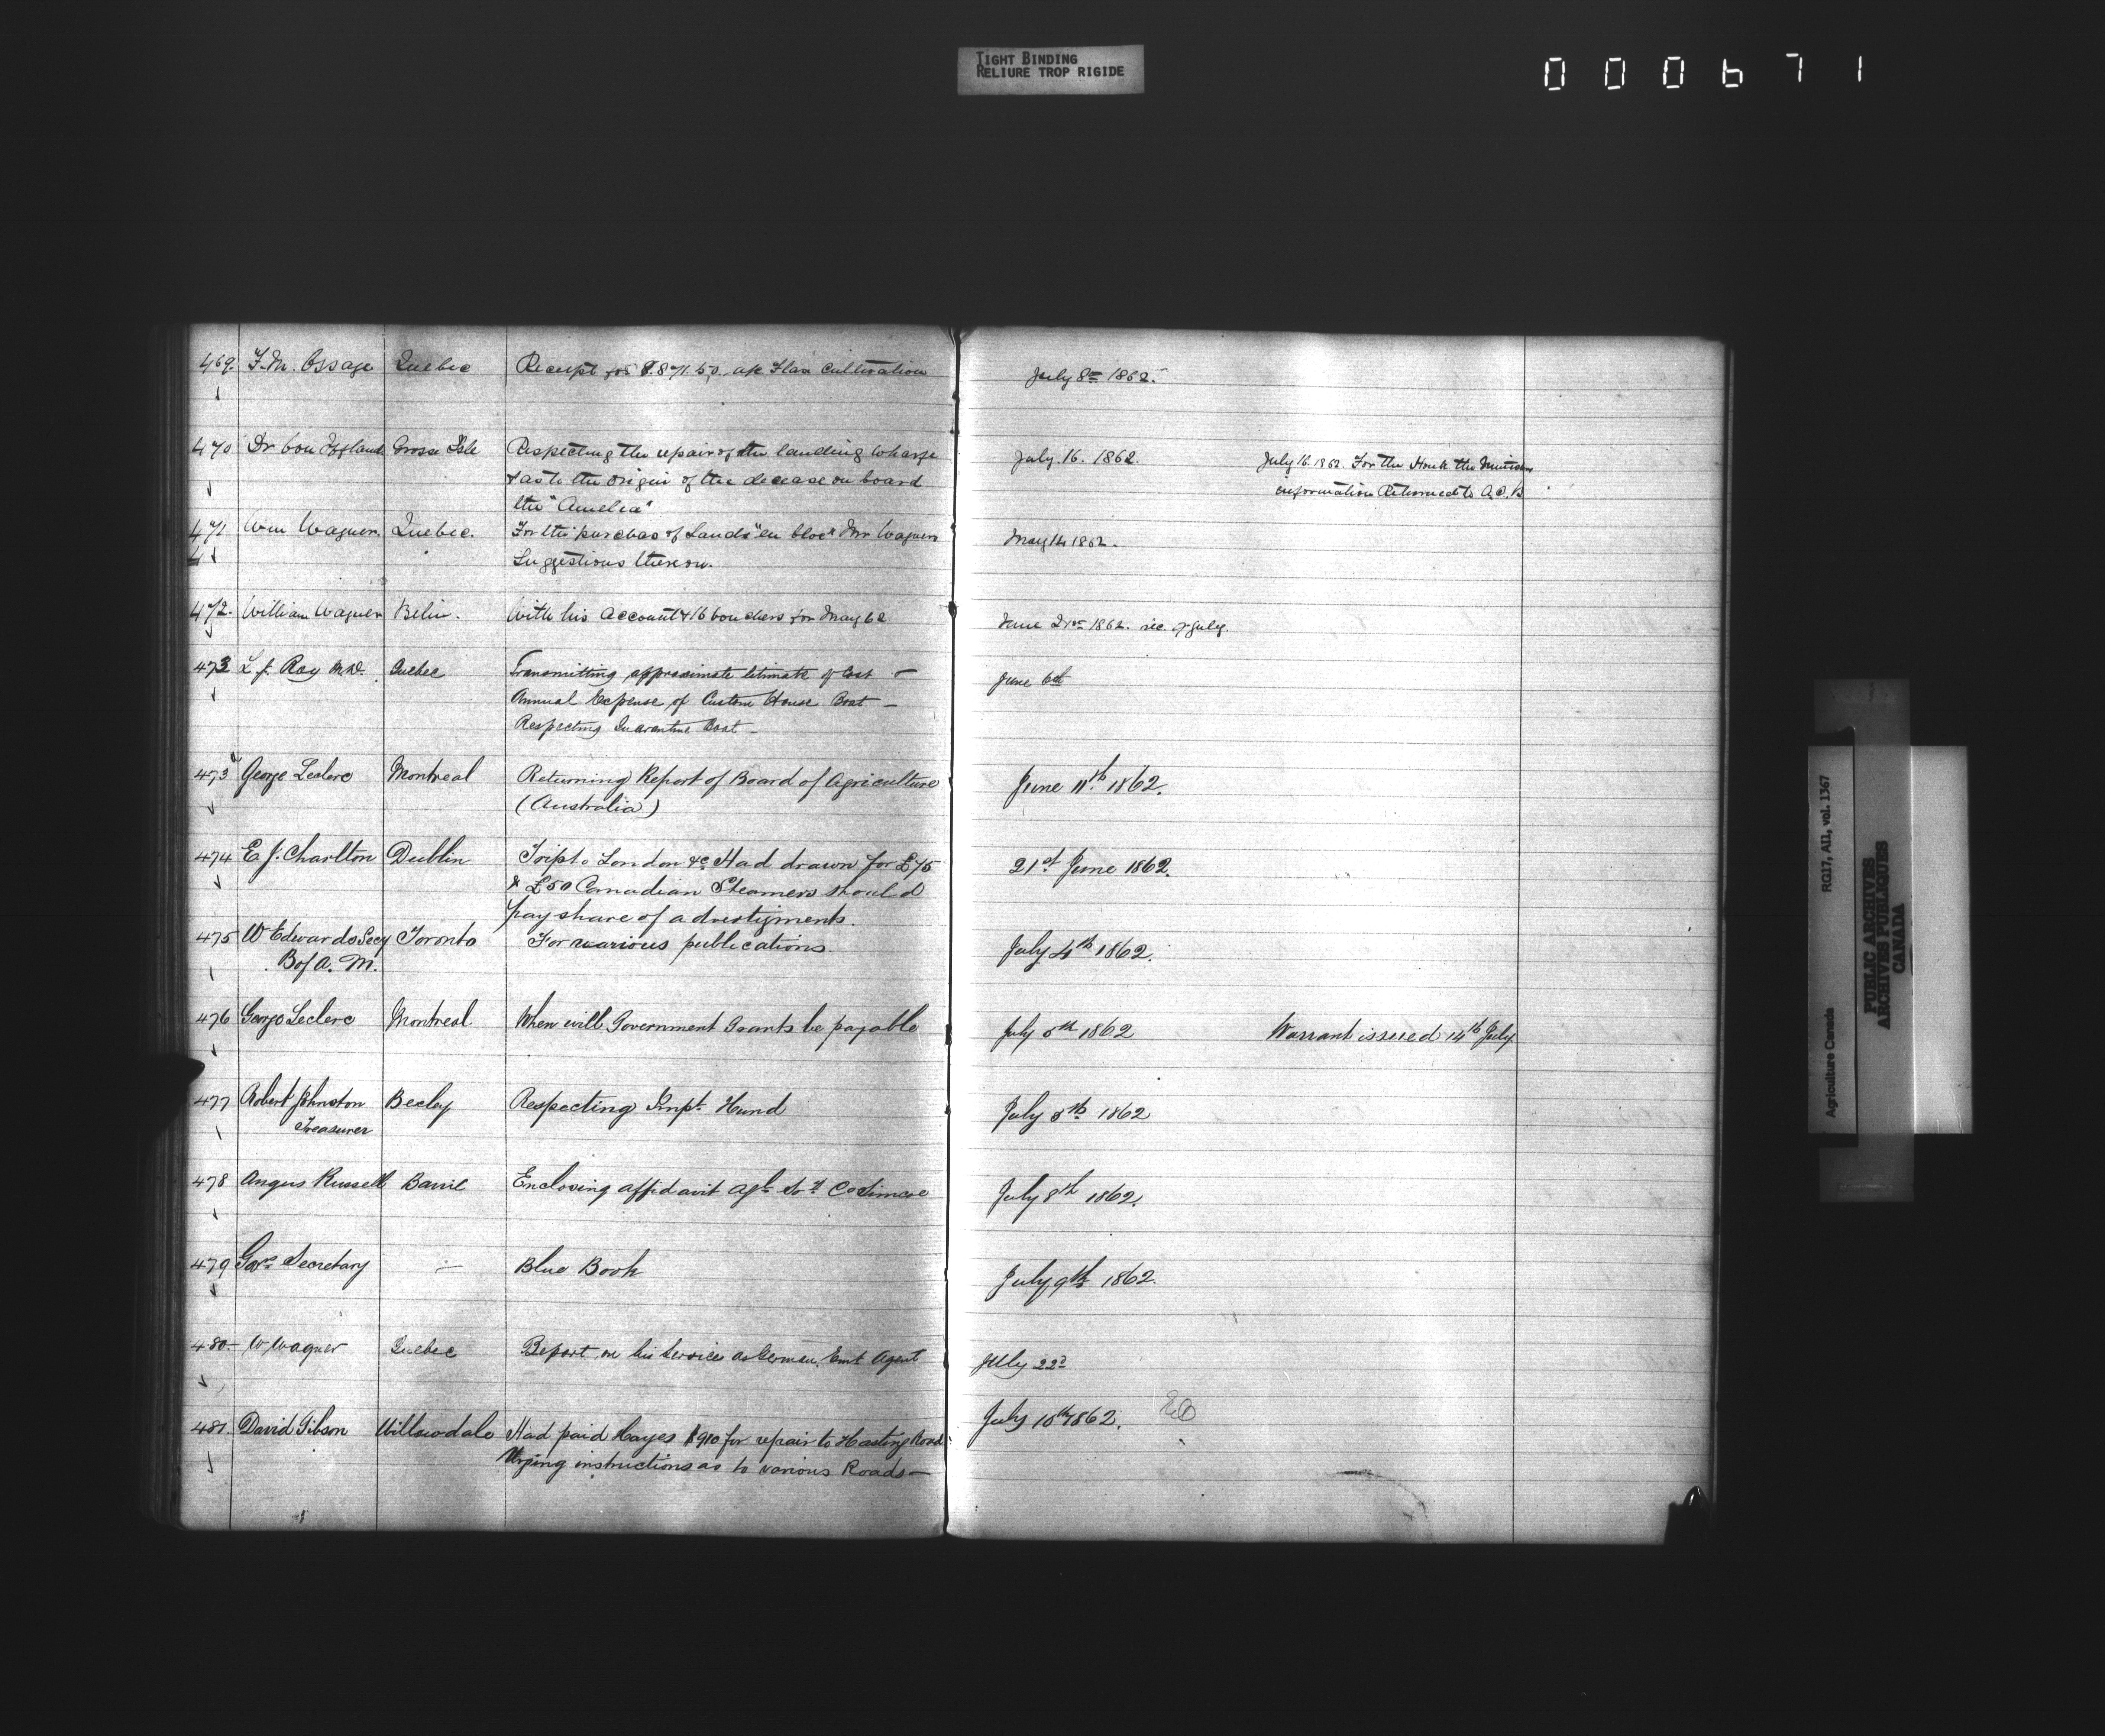 TIGHT BINDING
RELIURE TROP RIGIDE
000671
469. F. M. Ossaye Quebec Receipt for $.871.50 a/c Flax Cultivation July 8th 1862.
470 Dr von Iffland Grosse Isle Respecting the repair of the landing wharfe July. 16. 1862. July 16. 1862. For the Honle the Ministers
& as to the origin of the decease on board information Returned to
the "Amelia"
471 Wm Wagner. Quebec. For the purchas of Lands "en bloc" Mr Wagners May 14 1862.
Suggestions thereon.
472. William Wagner Berlin. With his Account & 16 vouchers for May 62 June 21st 1862. rec. 9 July.
473 L. J. Roy M.D. Quebec Transmitting approximate Estimate of Cost — June 6th
Annual Expense of Custom House Boat —
Respecting Quarantine Boat —
473a George Leclerc Montreal Returning Report of Board of Agriculture June 11th 1862.
(Australia)
474 E. J. Charlton Dublin Trip to London &c Had drawn for £75 21st June 1862.
& £50 Canadian Steamers should
pay share of advertizments.
475 W Edwards Secy Toronto For various publications. July 4th 1862.
B of A. M.
476 George Leclerc Montreal When will Government Grants be payable July 5th 1862 Warrant issued 14th July
477 Robert Johnston Becley Respecting Impt. Fund July 5th 1862
Treasurer
478 Angus Russell Barrie Enclosing affidavit Agl. Soy Co Simcoe July 8th 1862.
479 Govr Secretary — Blue Book July 9th 1862.
480 — W Wagner Quebec Report on his Services as German Emt Agent July 22d
481. David Gibson Willowdale Had paid Hayes $910 for repair to Hastings Road. July 10th 1862.
Urging instructions as to various Roads —
Agriculture Canada RG17, AII, vol. 1367
PUBLIC ARCHIVES
ARCHIVES PUBLIQUES
CANADA